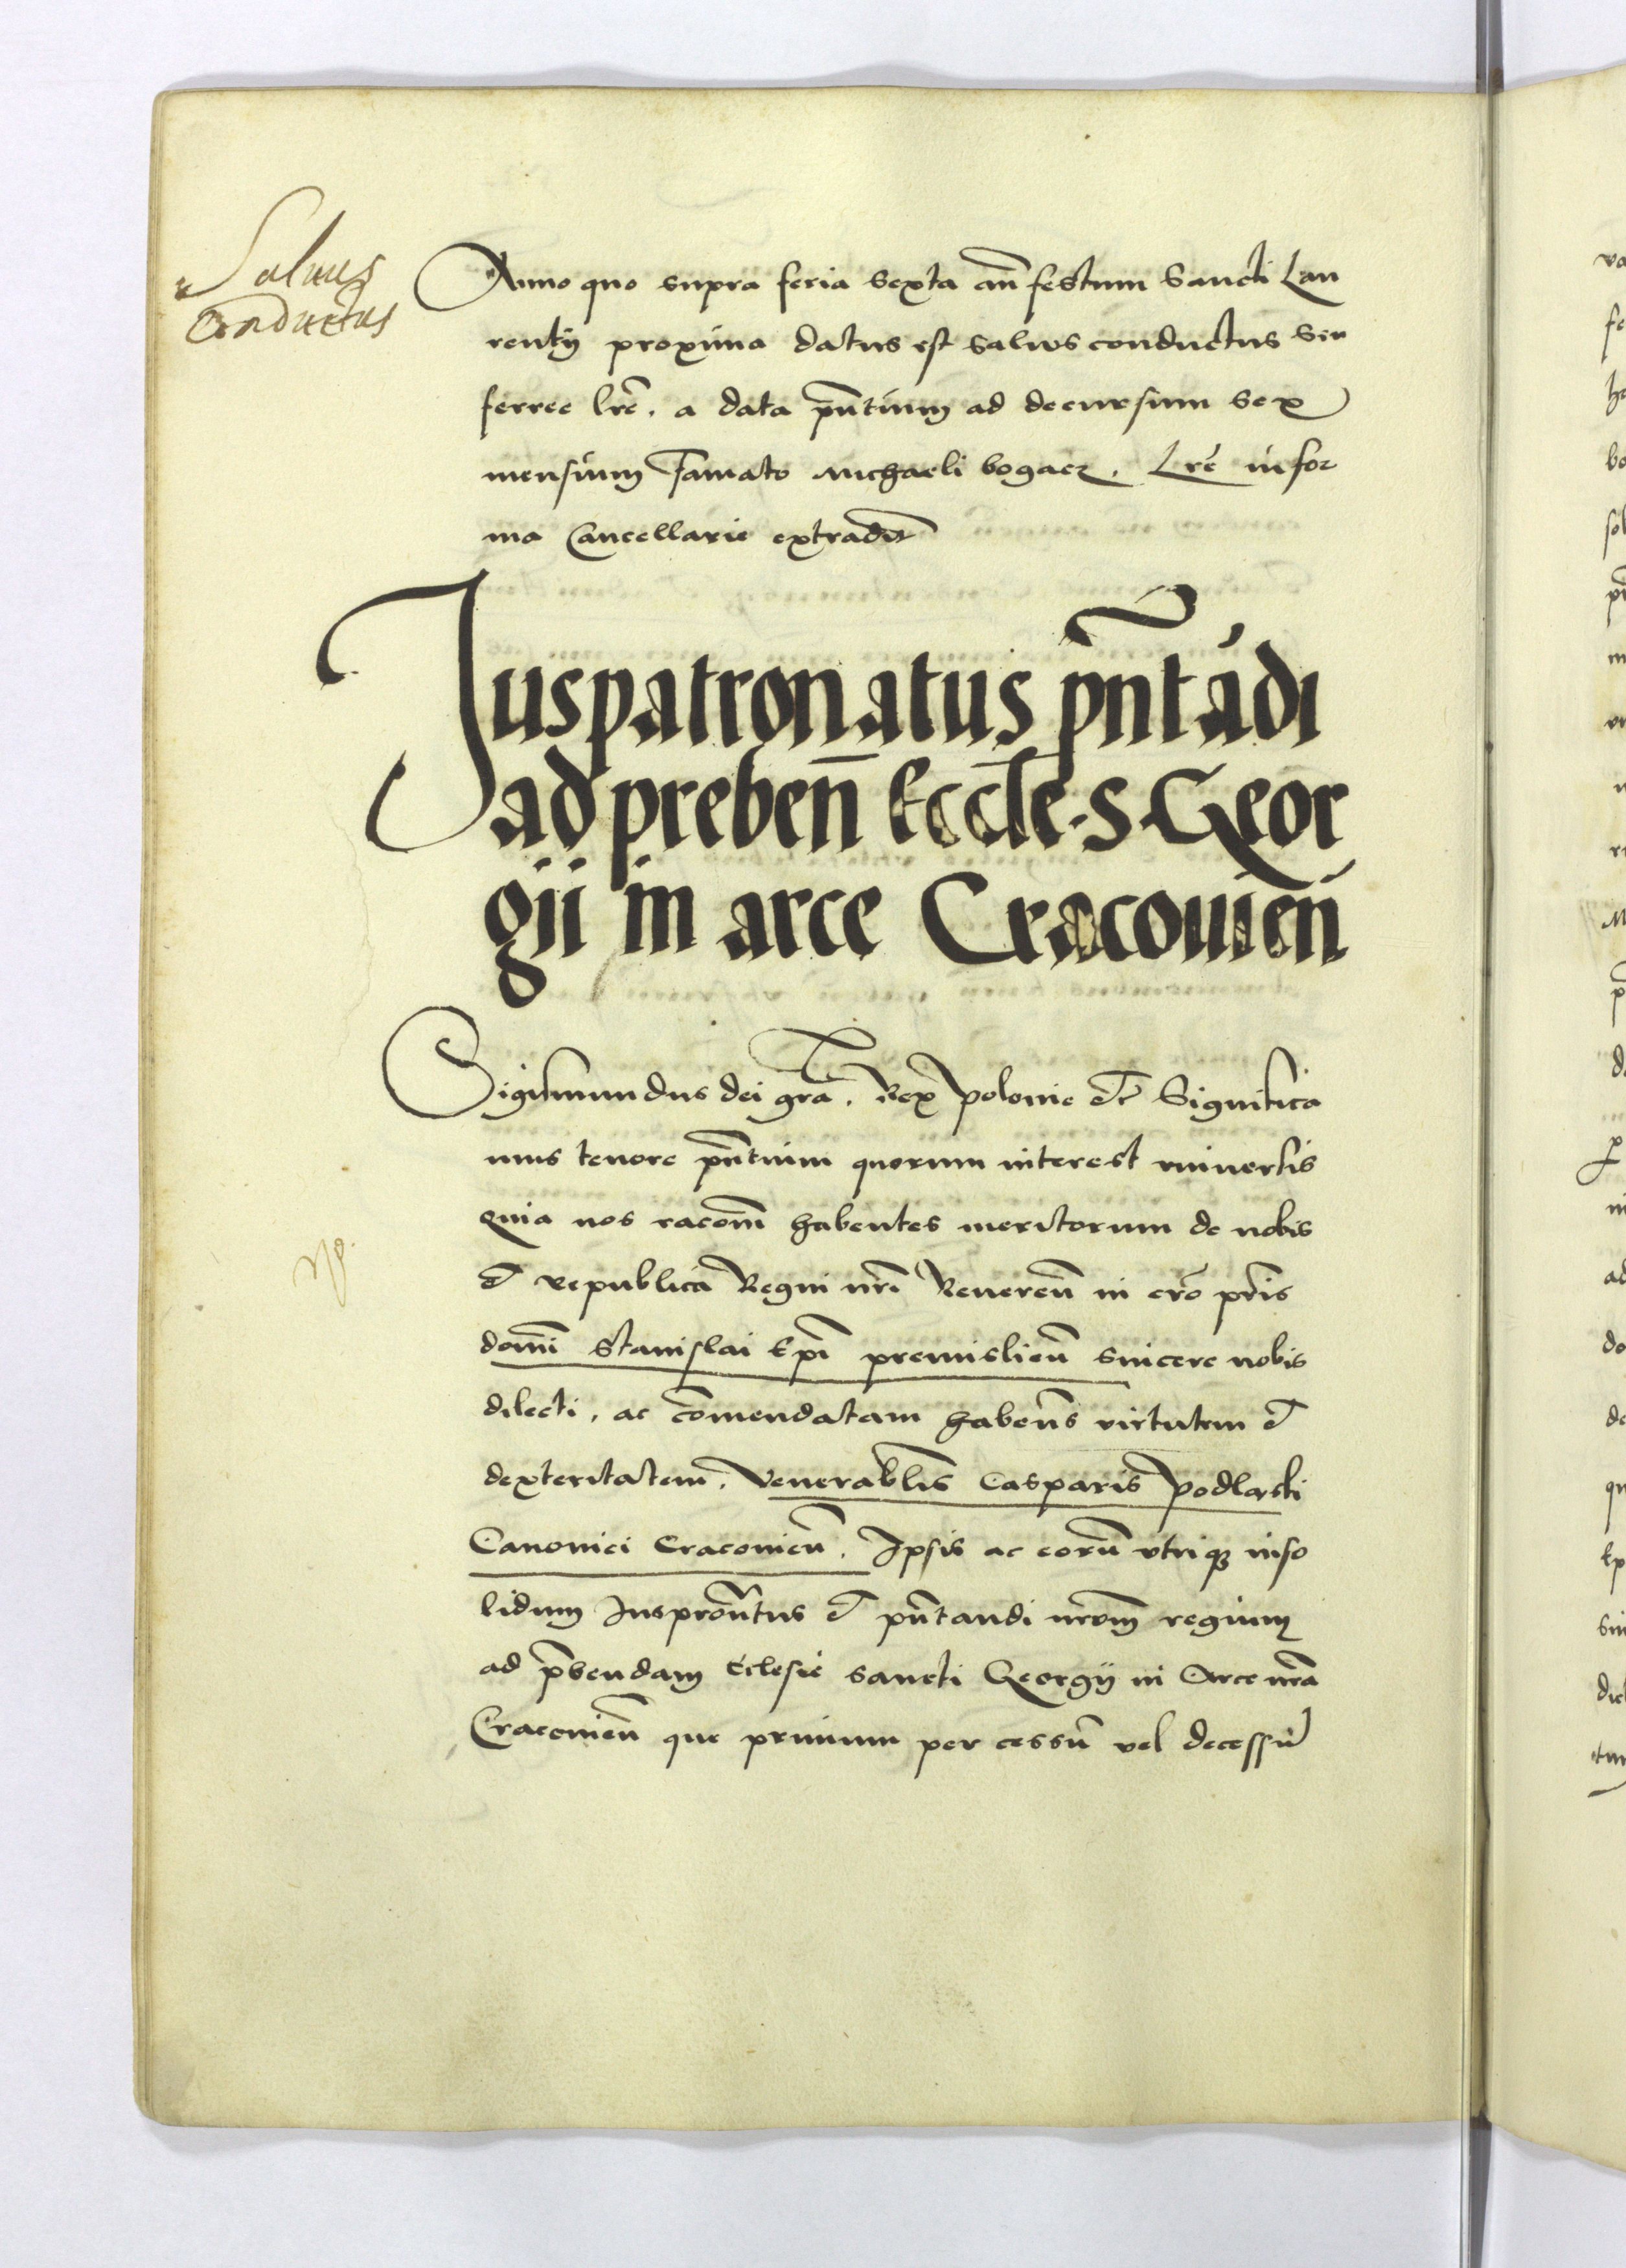 Salvus
Conductus
Anno quo supra feria sexta an̄ festum Sancti Lau
rentij proxima datus est salvus conductus seu
ferree lr̄e. a data pn̄tium ad decursum sex
mensium Famato Michaeli bogacz. Lr̄e in for
ma Cancellarie extradit̄
Juspatronatus pn̄tādi
ad preben̄ Eccl̄e. S. Geor
gii in arce Cracouien̄
Sigismundus dei gr̄a. Rex Polonie etc̄ Significa
mus tenore pn̄tium quorum interest universis
quia nos racōem habentes meritorum de nobis
et republica Regni nr̄i Reveren̄ in cr̄o pr̄is
domī Stanislai Ep̄i premislien̄ sincere nobis
dilecti, ac cōmendatam haben̄s virtutem et
dexteritatem. Venerabl̄is Casparis Podlaski
Canonici Cracovien̄. Ipsis ac eorū utriqȝ inso
lidum Juspron̄tus et pn̄tandi nr̄om regium
ad p̄bendam Eclesie sancti Georgij in Arce nr̄a
Cracovien̄ que primum per cessū vel decessū